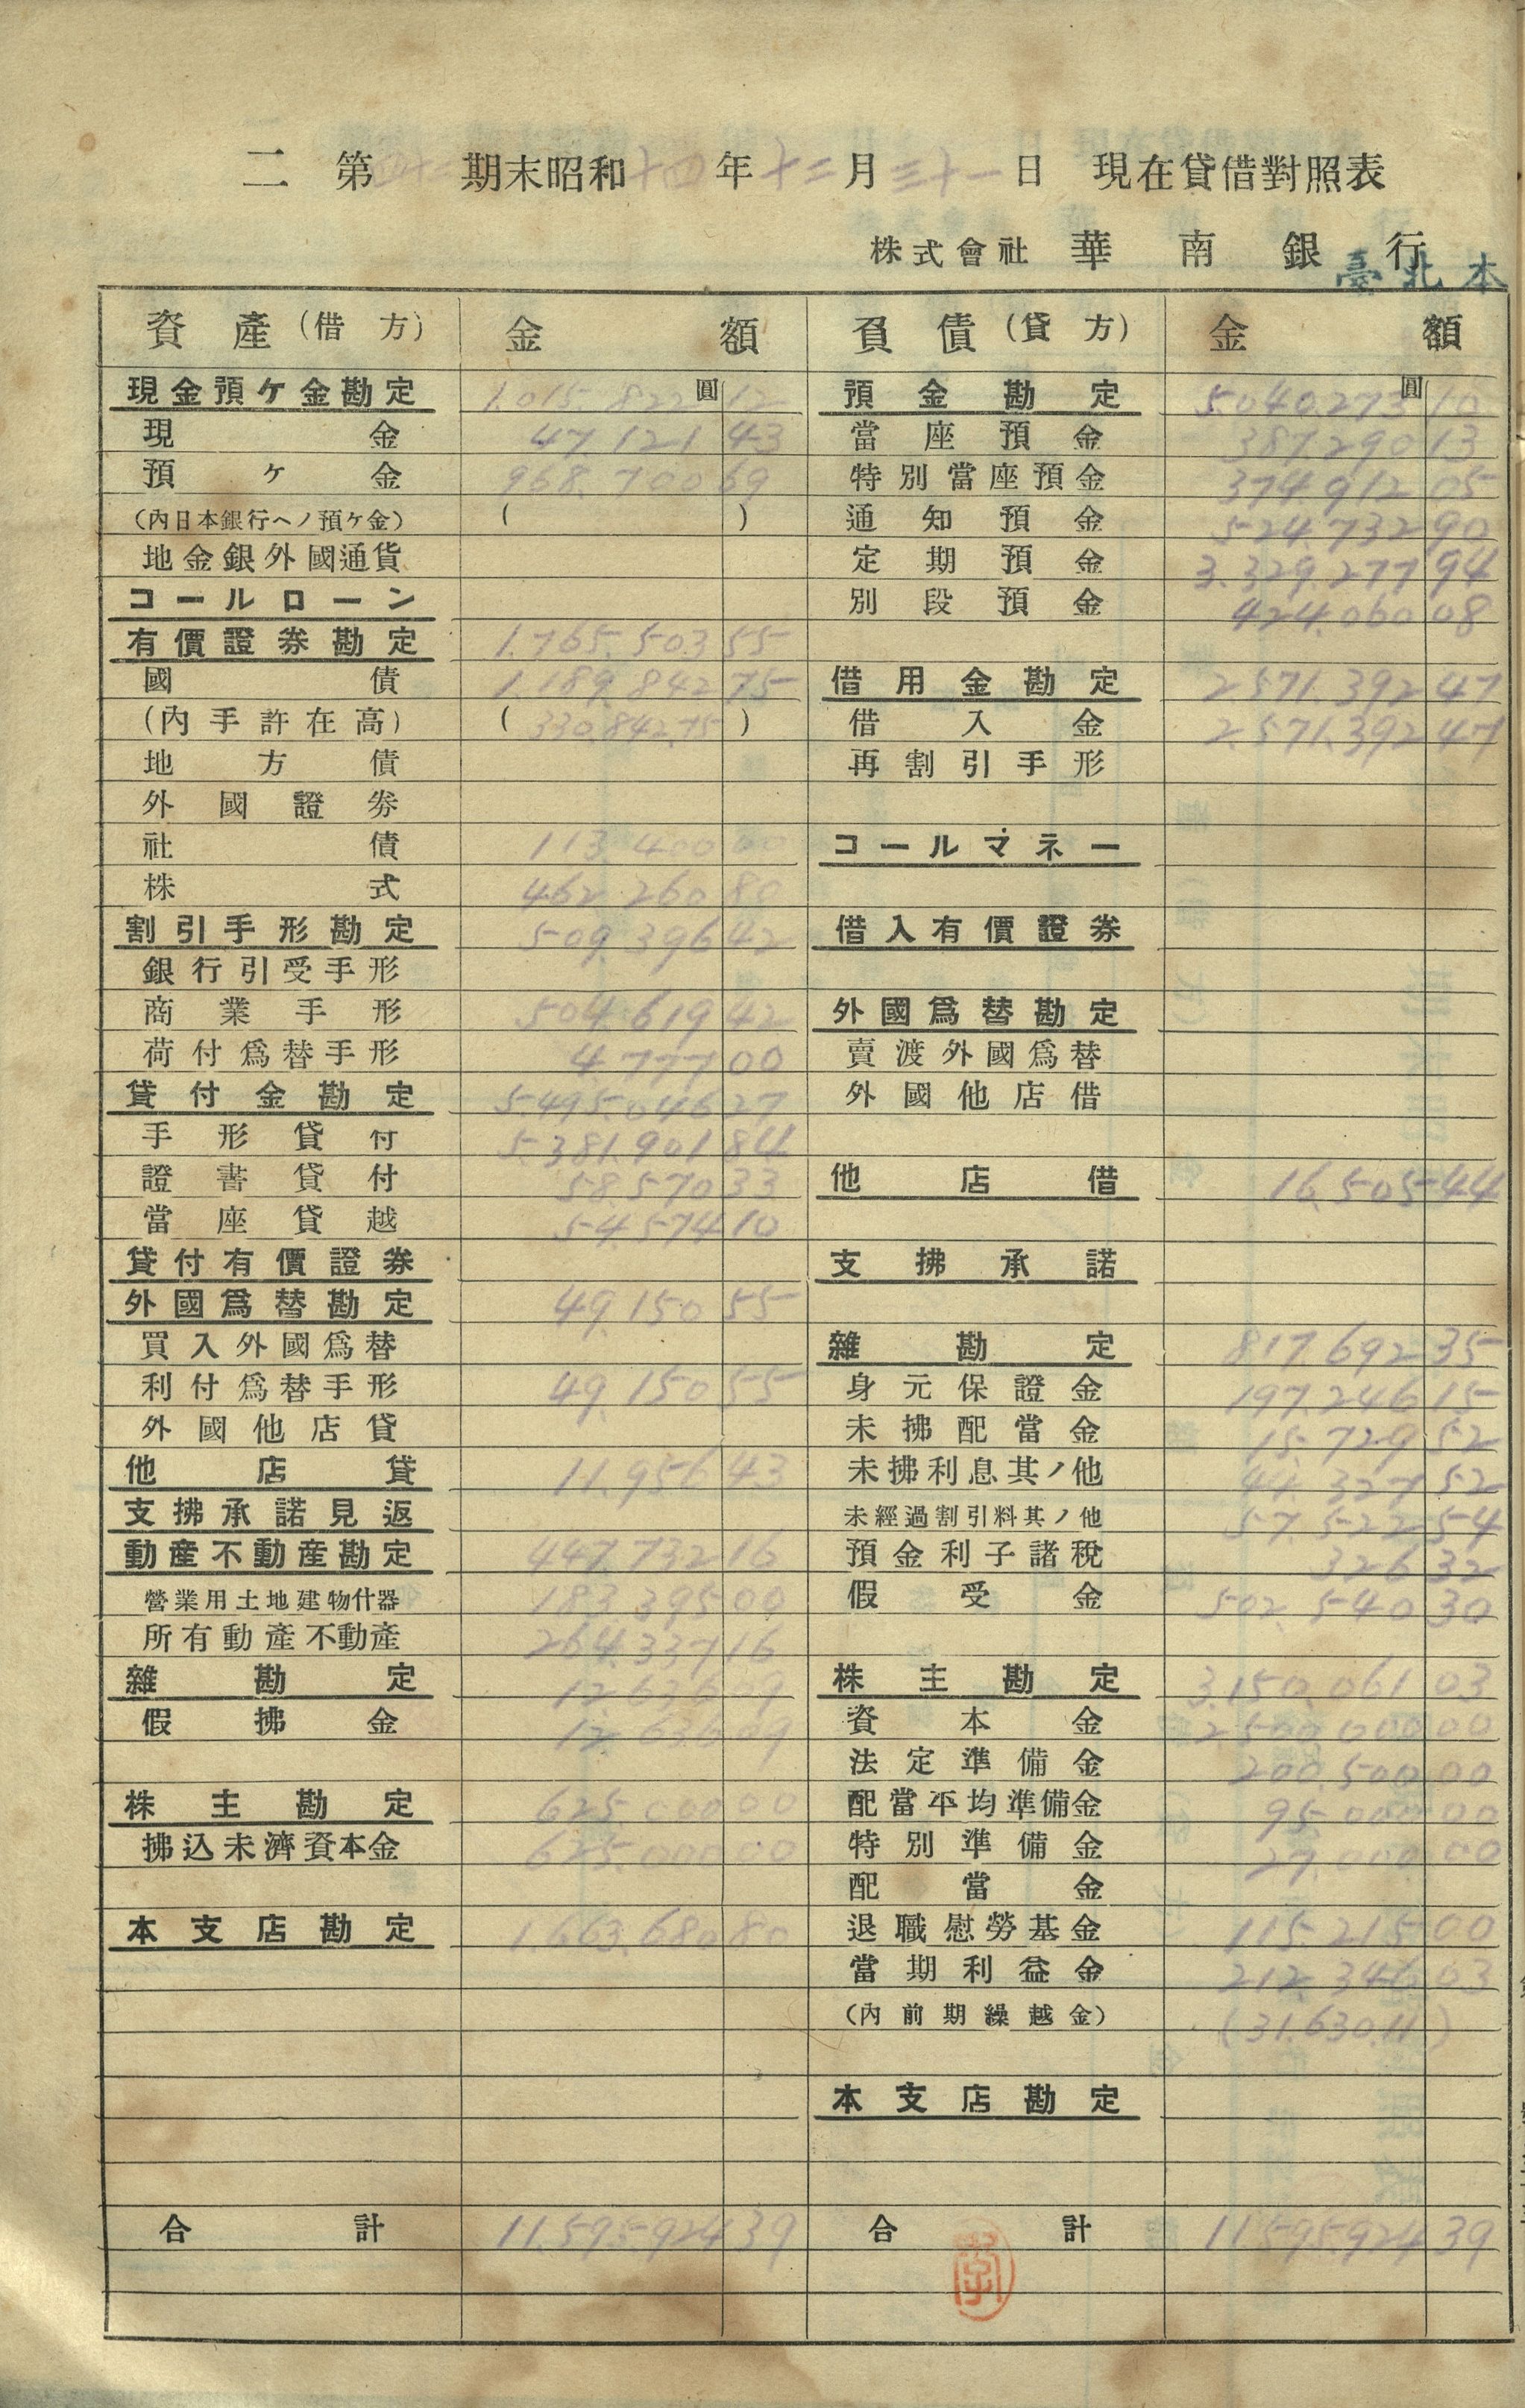 二 第四十二期末昭和十四年十二月三十一日 現在貸借對照表
株式會社 華南銀行
臺北本
資產(借方) 金額
現金預ケ金勘定 1.015.822圓12
現金 47.121 43
預ケ金 968.700 69
(內日本銀行ヘノ預ケ金) ( )
地金銀外國通貨
コールローン
有價證券勘定 1.765.503 55
國債 1.189.842 75
(內手許在高) (330.842.75)
地方債
外國證券
社債 113.400 00
株式 462.260 80
割引手形勘定 509.396 42
銀行引受手形
商業手形 504.619 42
荷付爲替手形 4.777 00
貸付金勘定 5.495.046 27
手形貸付 5.381.901 84
證書貸付 58.570 33
當座貸越 54.574 10
貸付有價證券
外國爲替勘定 49.150 55
買入外國爲替
利付爲替手形 49.150 55
外國他店貸
他店貸 11.956 43
支拂承諾見返
動產不動產勘定 447.732 16
營業用土地建物什器 183.395 00
所有動產不動產 264.337 16
雜勘定 12.636 09
假拂金 12.636 09
株主勘定 625.000 00
拂込未濟資本金 625.000 00
本支店勘定 1.663.680 80
合計 11.595.924 39
負債(貸方) 金額
預金勘定 5.040.273圓10
當座預金 387.290 13
特別當座預金 374.912 05
通知預金 524.732 90
定期預金 3.329.277 94
別段預金 424.060 08
借用金勘定 2.571.392 47
借入金 2.571.392 47
再割引手形
コールマネー
借入有價證券
外國爲替勘定
賣渡外國爲替
外國他店借
他店借 16.505 44
支拂承諾
雜勘定 817.692 35
身元保證金 197.246 15
未拂配當金 15.729 52
未拂利息其ノ他 44.327 52
未經過割引料其ノ他 57.522 54
預金利子諸稅 326 32
假受金 502.540 30
株主勘定 3.150.061 03
資本金 2.500.000 00
法定準備金 200.500 00
配當平均準備金 95.000 00
特別準備金 27.000 00
配當金
退職慰勞基金 115.215 00
當期利益金 212.346 03
(內前期繰越金) (31.630.11)
本支店勘定
合計 11.595.924 39